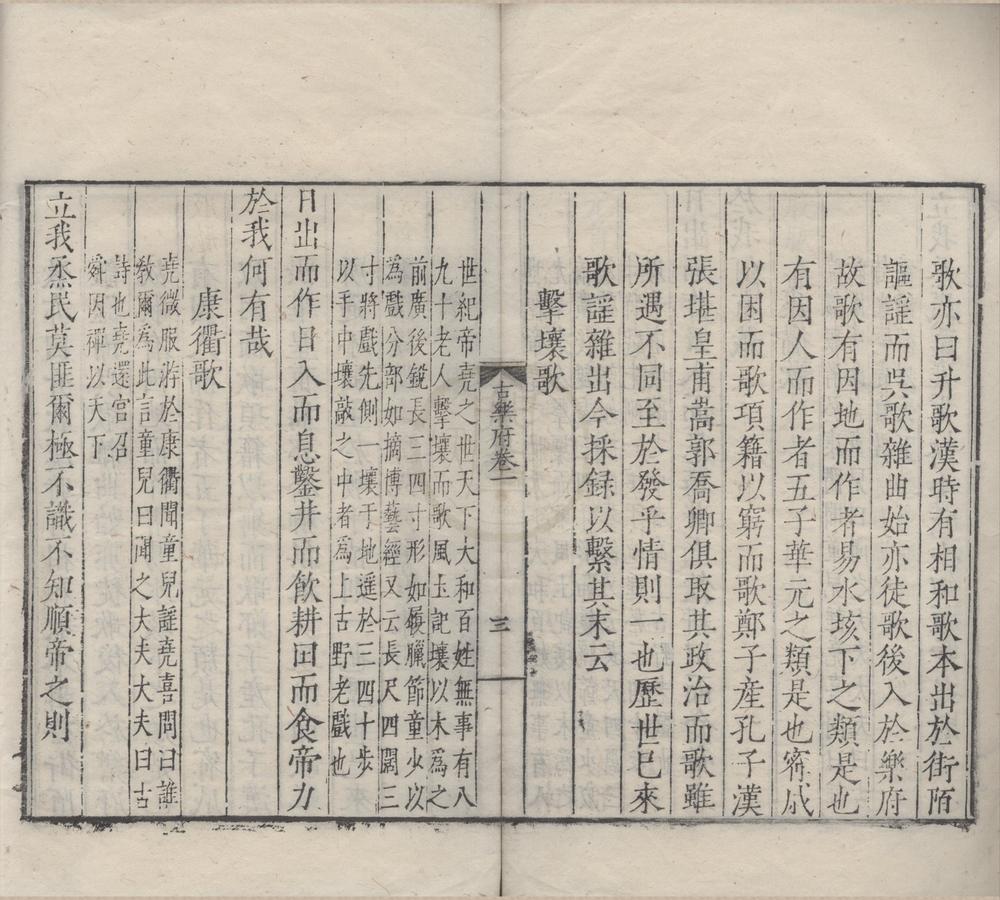 歌亦曰升歌漢時有相和歌本出於街陌
謳謡而吳歌雜曲始亦徒歌後入於樂府
故歌有因地而作者易水垓下之類是也
有因人而作者五子華元之類是也甯戚
以困而歌項籍以窮而歌鄭子產孔子漢
張堪皇甫蒿郭喬卿俱取其政治而歌雖
所遇不同至於發乎情則一也歷世已來
歌謡雜出今採録以繫其末云
擊壤歌
古樂府卷一
三
世紀帝堯之世天下大和百姓無事有八
九十老人擊壤而歌風土記壤以木爲之
前廣後銳長三四寸形如履臘節童少以
爲戲分部如摘博藝經又云長尺四闊三
寸將戲先側一壤于地遥於三四十步
以手中壤敲之中者爲上古野老戲也
日出而作日入而息鑿井而飲耕田而食帝力
於我何有哉
康衢歌
堯微服游於康衢聞童兒謡堯喜問曰誰
敎爾爲此言童兒曰聞之大夫大夫曰古
詩也堯還宫召
舜因禪以天下
立我烝民莫匪爾極不識不知順帝之則